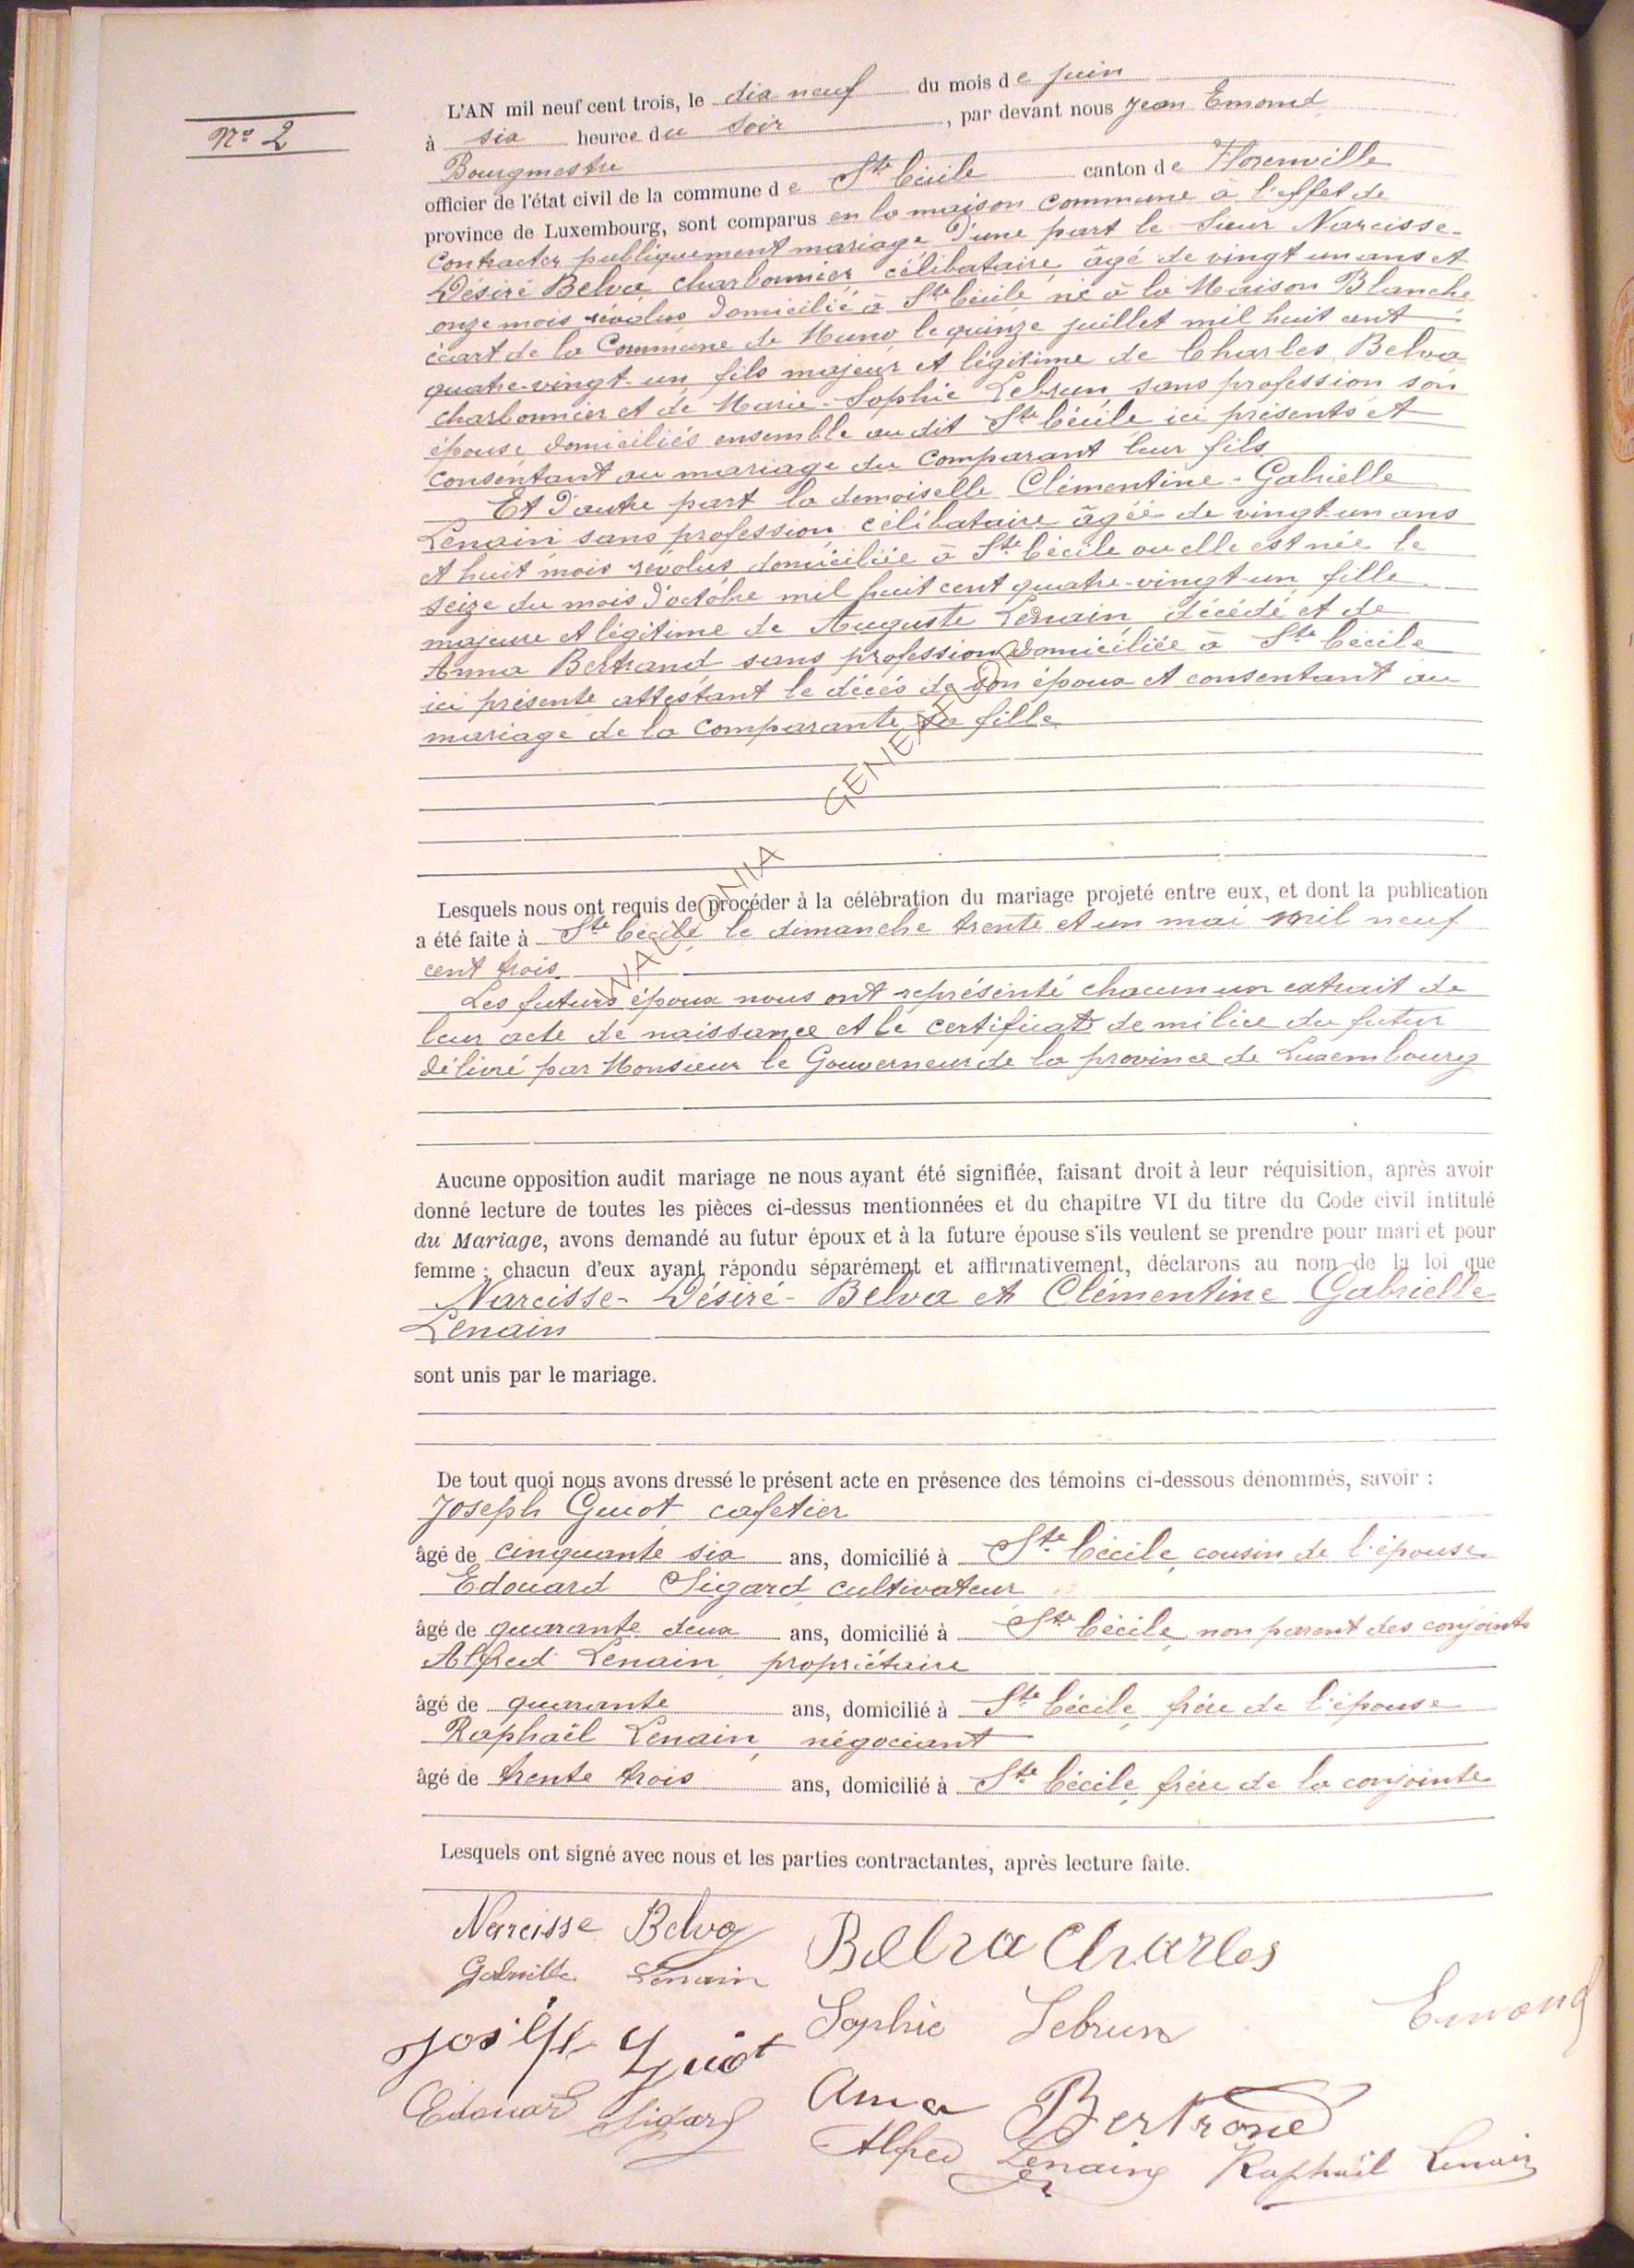 Nº 2
L'AN mil neuf cent trois, le dix neuf du mois de juin
à six heures du soir, par devant nous Jean Emond
Bourgmestre
officier de l'état civil de la commune de Ste Cécile canton de Florenville
province de Luxembourg, sont comparus en la maison commune a l'effet de
contracter publiquement mariage d'une part le Sieur Narcisse-
Désiré Belva charbonnier célibataire âgé de vingt un ans et
onze mois révolus domicilié à Ste Cécile né à la Maison Blanche
écart de la Commune de Muno le quinze juillet mil huit cent
quatre-vingt-un fils majeur et légitime de Charles Belva
charbonnier et de Marie-Sophie Lebrun sans profession son
épouse domiciliés ensemble au dit Ste Cécile ici présents et
consentant au mariage du comparant leur fils
Et d'autre part la demoiselle Clémentine-Gabrielle
Lenain sans profession célibataire âgée de vingt-un ans
et huit mois révolus domiciliée à Ste Cécile ou elle est née le
seize du mois d'octobre mil huit cent quatre-vingt-un fille
majeure et légitime de Auguste Lenain décédé et de
Anna Bertrand sans profession domiciliée à Ste Cécile
ici présente attestant le décés de son époux et consentant au
mariage de la comparante sa fille
WALLONIA GENEAFUDA
Lesquels nous ont requis de procéder à la célébration du mariage projeté entre eux, et dont la publication
a été faite à Ste Cécile le dimanche trente et un mai mil neuf
cent trois
Les futurs époux nous ont représenté chacun un extrait de
leur acte de naissance et le certificat de milice du futur
délivré par Monsieur le Gouverneur de la province de Luxembourg
Aucune opposition audit mariage ne nous ayant été signifiée, faisant droit à leur réquisition, après avoir
donné lecture de toutes les pièces ci-dessus mentionnées et du chapitre VI du titre du Code civil intitulé
du Mariage, avons demandé au futur époux et à la future épouse s'ils veulent se prendre pour mari et pour
femme ; chacun d'eux ayant répondu séparément et affirmativement, déclarons au nom de la loi que
Narcisse-Désiré-Belva et Clémentine Gabrielle
Lenain
sont unis par le mariage.
De tout quoi nous avons dressé le présent acte en présence des témoins ci-dessous dénommés, savoir :
Joseph Guiot cafetier
âgé de cinquante six ans, domicilié à Ste Cécile, cousin de l'épouse
Edouard Sigard cultivateur
âgé de quarante deux ans, domicilié à Ste Cécile, non parent des conjoints
Alfred Lenain, propriétaire
âgé de quarante ans, domicilié à Ste Cécile, frére de l'épouse
Raphaël Lenain, négociant
âgé de trente trois ans, domicilié à Ste Cécile, frére de la conjointe
Lesquels ont signé avec nous et les parties contractantes, après lecture faite.
Narcisse Belva Belva Charles
Gabrielle Lenain
Sophie Lebrun Emond
Joseph Guiot
Anna Bertrand
Edouard Sigard
Alfred Lenain Raphaël Lenain